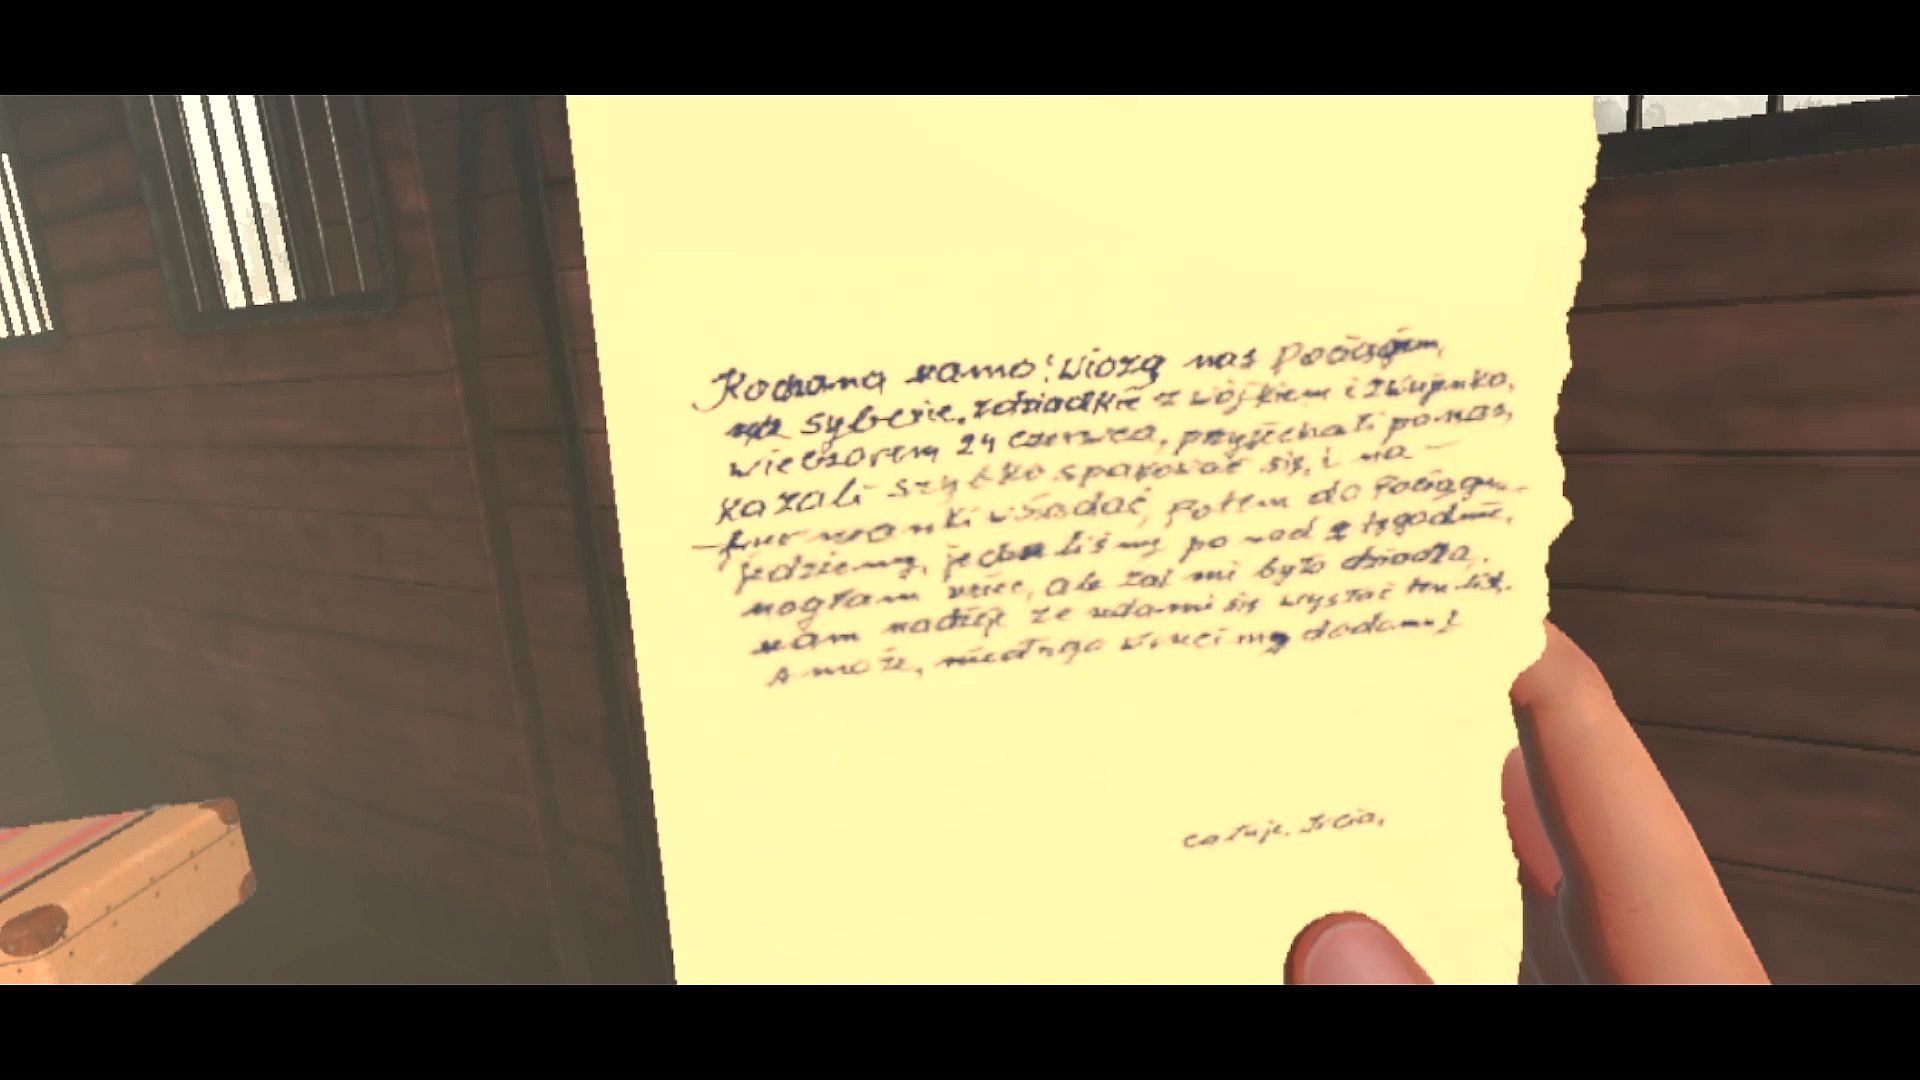 Kochana mamo! wiozą nas pociągiem,
na syberie. z dziadkiem z wójkiem i z wujenką,
wieczorem 24 czerwca, przyjechali po nas,
kazali szybko spakować się, i na –
– furmanki wsiadać, potem do pociągu.
jedziemy, jechaliśmy ponad 2 tygodnie,
mogłam uciec, ale żal mi było dziadka.
mam nadzieje ze uda mi się wysłać ten list.
A może, niedługo wrócimy do domu!
całuje.